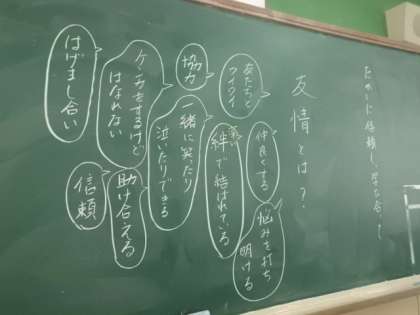 友情とは？
友だちと
ワイワイ
仲良くする
悩みを打ち
明ける
協力
強い
絆で結ばれている
一緒に笑ったり
泣いたりできる
ケンカをするけど
はなれない
助け合える
信頼
はげまし合い